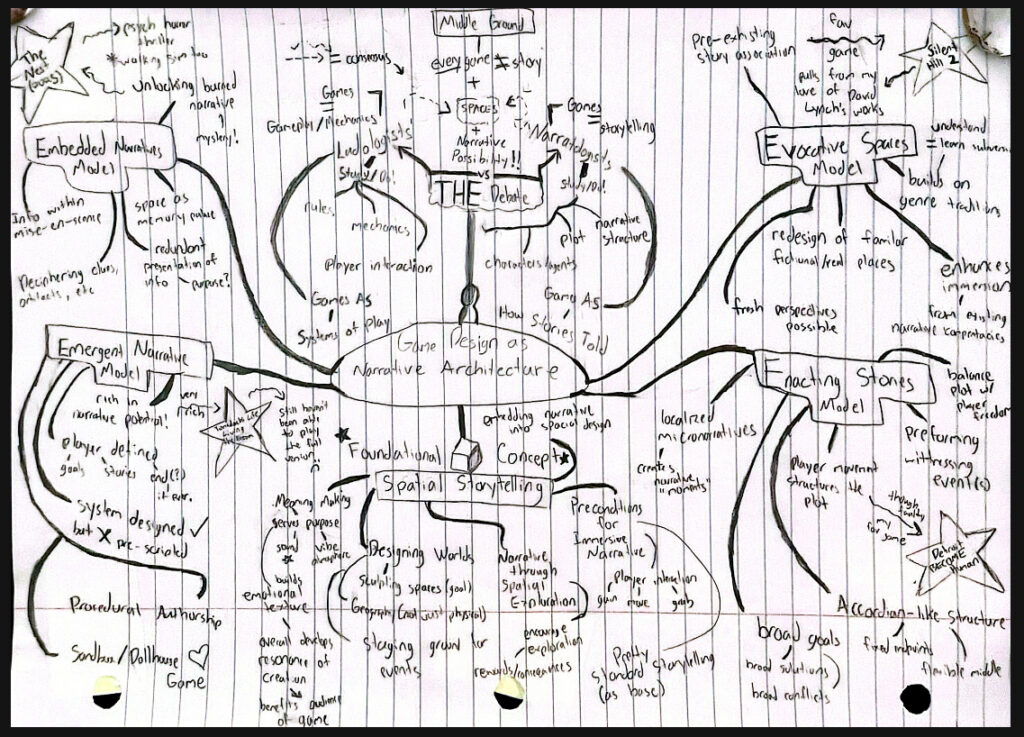 Middle Ground
every game ≠ story
+
SPACES
+
Narrative
Possibility!!
vs
THE Debate
= consensus
Games
=
Gameplay/Mechanics
Ludologists'
Study/Do!
rules
mechanics
player interaction
Games As
Systems of play
Games
= storytelling
Narratologists
Study/Do!
plot
narrative
structure
characters/agents
Game As
How Stories Told
Game Design as
Narrative Architecture
psych horror
thriller
* walking sim too
unlocking buried
narrative
mystery!
Embedded Narratives
Model
Info within
mise-en-scene
space as
memory palace
Deciphering clues,
artifacts, etc
redundant
presentation of
info purpose?
Pre-existing
story association
fav
game
Silent
Hill 2
pulls from my
love of David
Lynch's works
Evocative Spaces
Model
understand
= learn
builds on
genre traditions
redesign of familar
fictional/real places
fresh perspectives
possible
enhances
immersion
from existing
narrative
Emergent Narrative
Model
rich in
narrative potential!
very
rich
still haven't
been able
to play
the full
version
player defined
goals stories end(?)
if ever.
system designed ✓
but X pre-scripted
Procedural Authorship
Sandbox/Dollhouse ♡
Game
embedding narrative
into spacial design
Foundational Concept
Spatial Storytelling
Meaning Making
serves purpose
sound
vibe
atmosphere
builds
emotional
texture
overall develops
resonance of
creation
benefits audience
of game
Designing Worlds
sculpting spaces (goal)
Geography (not just physical)
staging ground for
events
Narrative
through
Spatial
Exploration
encourage
exploration
rewards/consequences
Preconditions
for
Immersive
Narrative
player interaction
gun move grab
Pretty
standard storytelling
(as base)
Enacting Stories
Model
balance
plot w/
player
freedom
localized
micronarratives
creates
narrative
"moments"
player movement
structures the
plot
preforming
witnessing
event(s)
my
for
Detroit
BECOME
Human
Accordian-like-structure
fixed
flexible middle
broad goals
broad solutions
broad conflicts